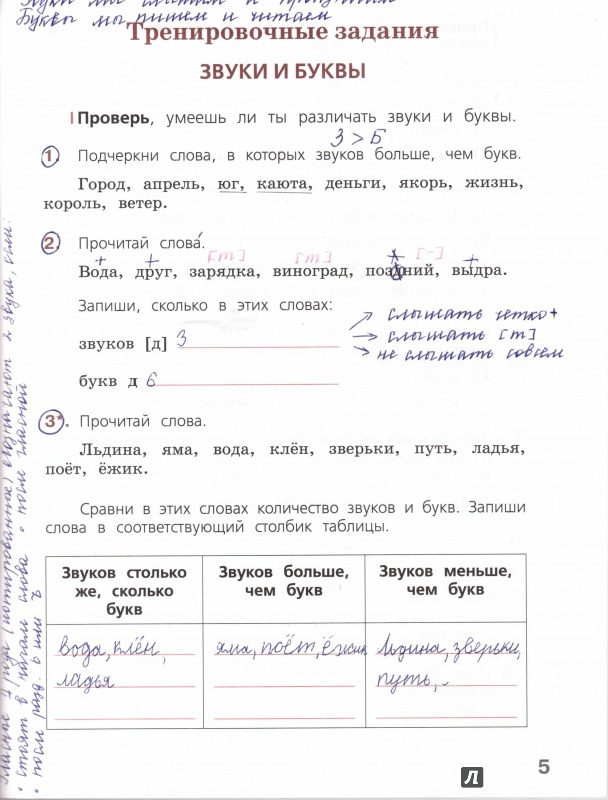 Буквы мы пишем и читаем
Тренировочные задания
ЗВУКИ И БУКВЫ
Проверь, умеешь ли ты различать звуки и буквы.
З > Б
1. Подчеркни слова, в которых звуков больше, чем букв.
Город, апрель, юг, каюта, деньги, якорь, жизнь,
король, ветер.
2. Прочитай слова.
+ + [т] [т] [-] +
Вода, друг, зарядка, виноград, поздний, выдра.
Запиши, сколько в этих словах:
→ слышать четко +
звуков [д] 3 → слышать [т]
→ не слышать совсем
букв д 6
3*. Прочитай слова.
Льдина, яма, вода, клён, зверьки, путь, ладья,
поёт, ёжик.
Сравни в этих словах количество звуков и букв. Запиши
слова в соответствующий столбик таблицы.
Звуков столько же, сколько букв
Звуков больше, чем букв
Звуков меньше, чем букв
вода, клён,
ладья
яма, поёт, ёжик
Льдина, зверьки,
путь,
5
Л
гласные 1 ряда (йотированные) обозначают 2 звука, если:
• стоят в начале слова • после гласной
• после разд. ь или ъ